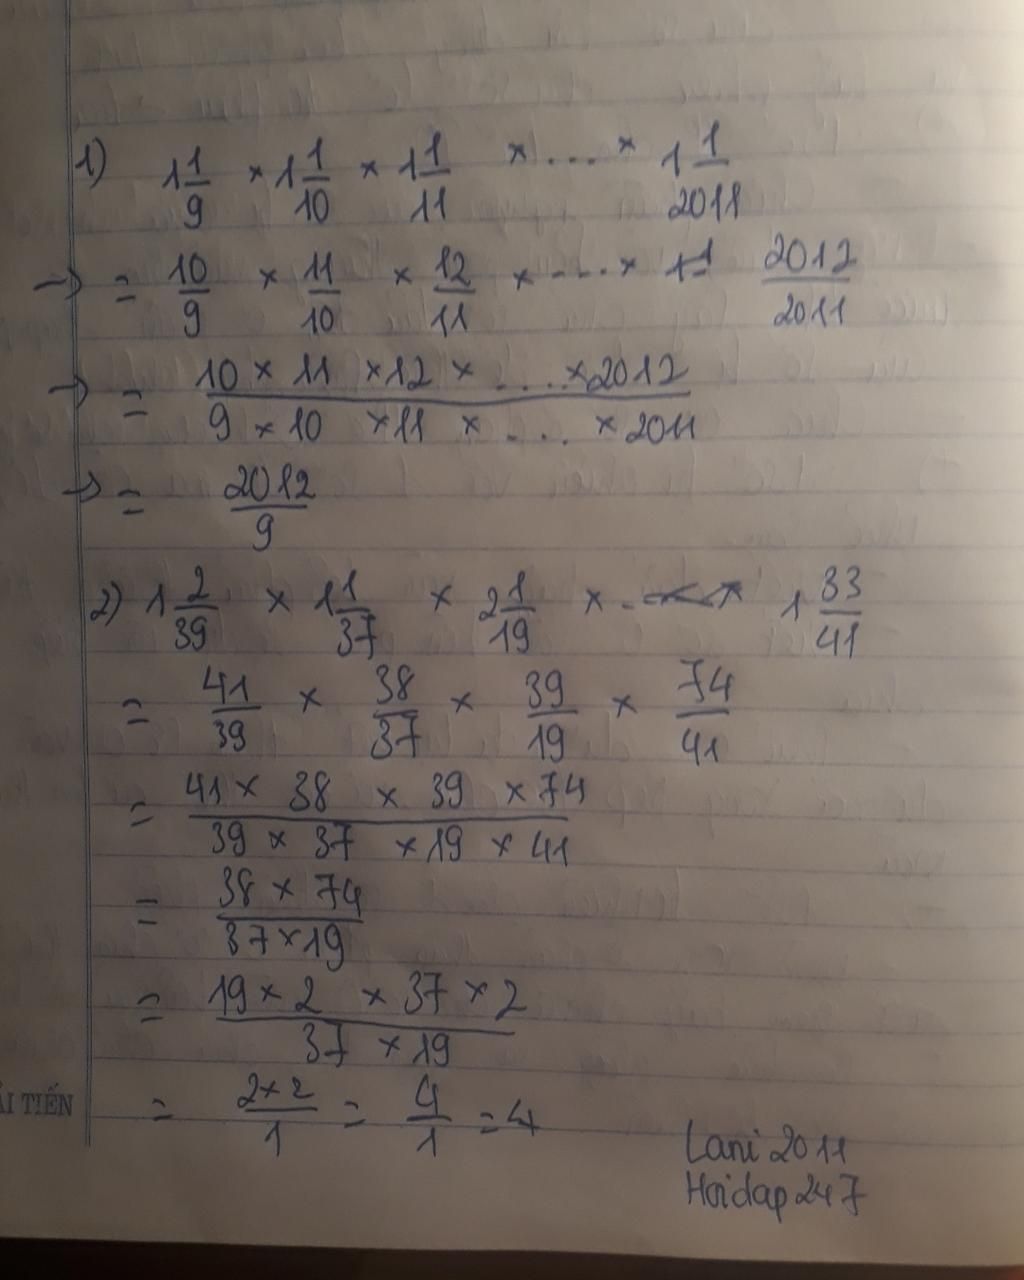 1) 1 1/9 × 1 1/10 × 1 1/11 × ... × 1 1/2011
→ = 10/9 × 11/10 × 12/11 × .... × 2012/2011
→ = 10 × 11 × 12 × .... × 2012 / 9 × 10 × 11 × .... × 2011
→ = 2012/9
2) 1 2/39 × 1 1/37 × 2 1/19 × 1 33/41
= 41/39 × 38/37 × 39/19 × 74/41
= 41 × 38 × 39 × 74 / 39 × 37 × 19 × 41
= 38 × 74 / 37 × 19
= 19 × 2 × 37 × 2 / 37 × 19
= 2 × 2 / 1 = 4/1 = 4
ẢI TIẾN
Lani 2011
Hoidap247